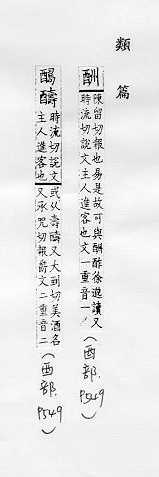 類篇
酬 陳留切報也易是故可與酬酢徐邈讀又
時流切說文主人進客也文一重音一
(酉部.P549)
醻 時流切說文或从壽醻又大到切美酒名
主人進客也又承咒切報喬文二重音二
(酉部.P549)